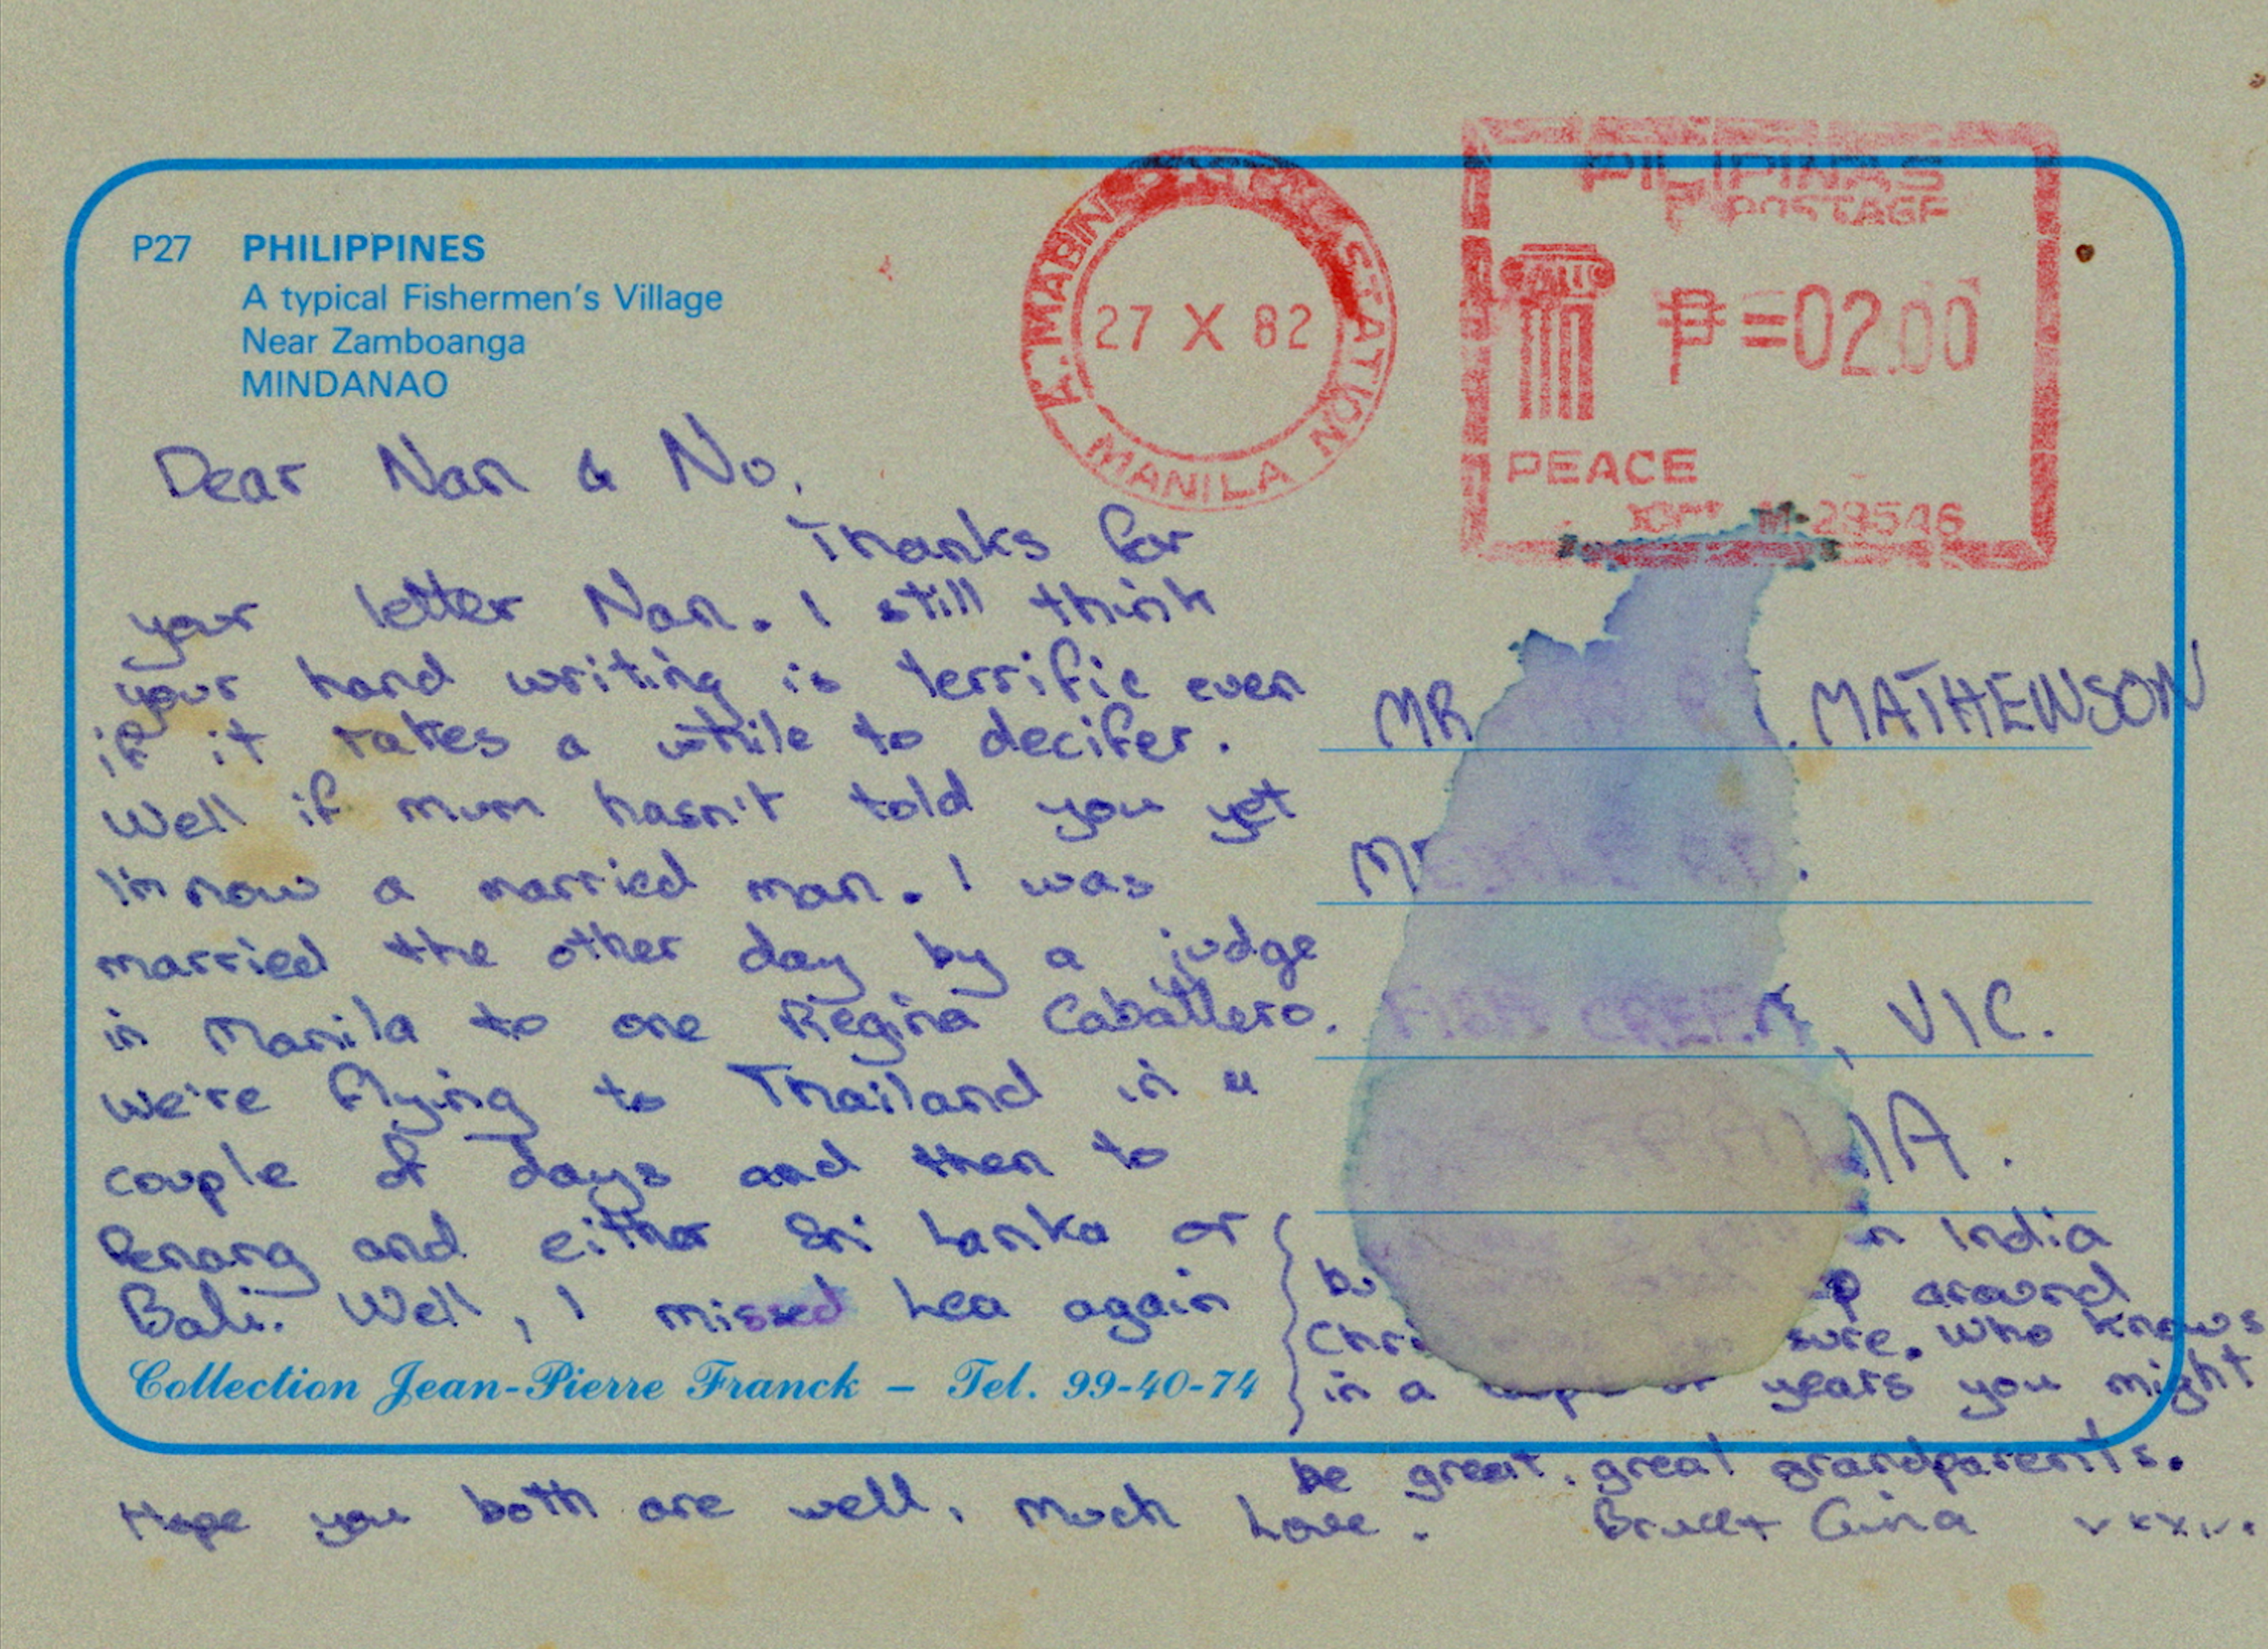 P27 PHILIPPINES
A typical Fishermen's Village
Near Zamboanga
MINDANAO
A. MABINI POSTAL STATION
27 X 82
MANILA
PILIPINAS
POSTAGE
₱=02.00
PEACE
29546
Dear Nan & No,
Thanks for
your letter Nan. I still think
your hand writing is terrific even
if it takes a while to decifer.
Well if mum hasn't told you yet
I'm now a married man. I was
married the other day by a judge
in Manila to one Regina Caballero.
We're flying to Thailand in a
couple of days and then to
Penang and either Sri Lanka or
Bali. Well, I missed Lea again
Collection Jean-Pierre Franck – Tel. 99-40-74
Hope you both are well, Much Love.
MR MATHEWSON
FISH CREEK, VIC.
in India
around
sure. Who knows
in a years you might
be great, great grandparents.
Bruce + Gina